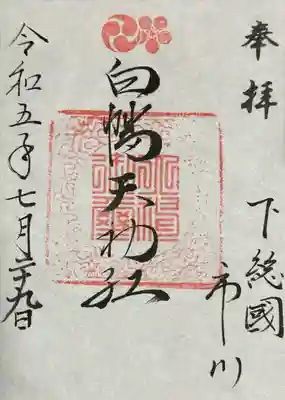 奉拝
下総國
市川
白幡天神社
令和五年七月二十九日